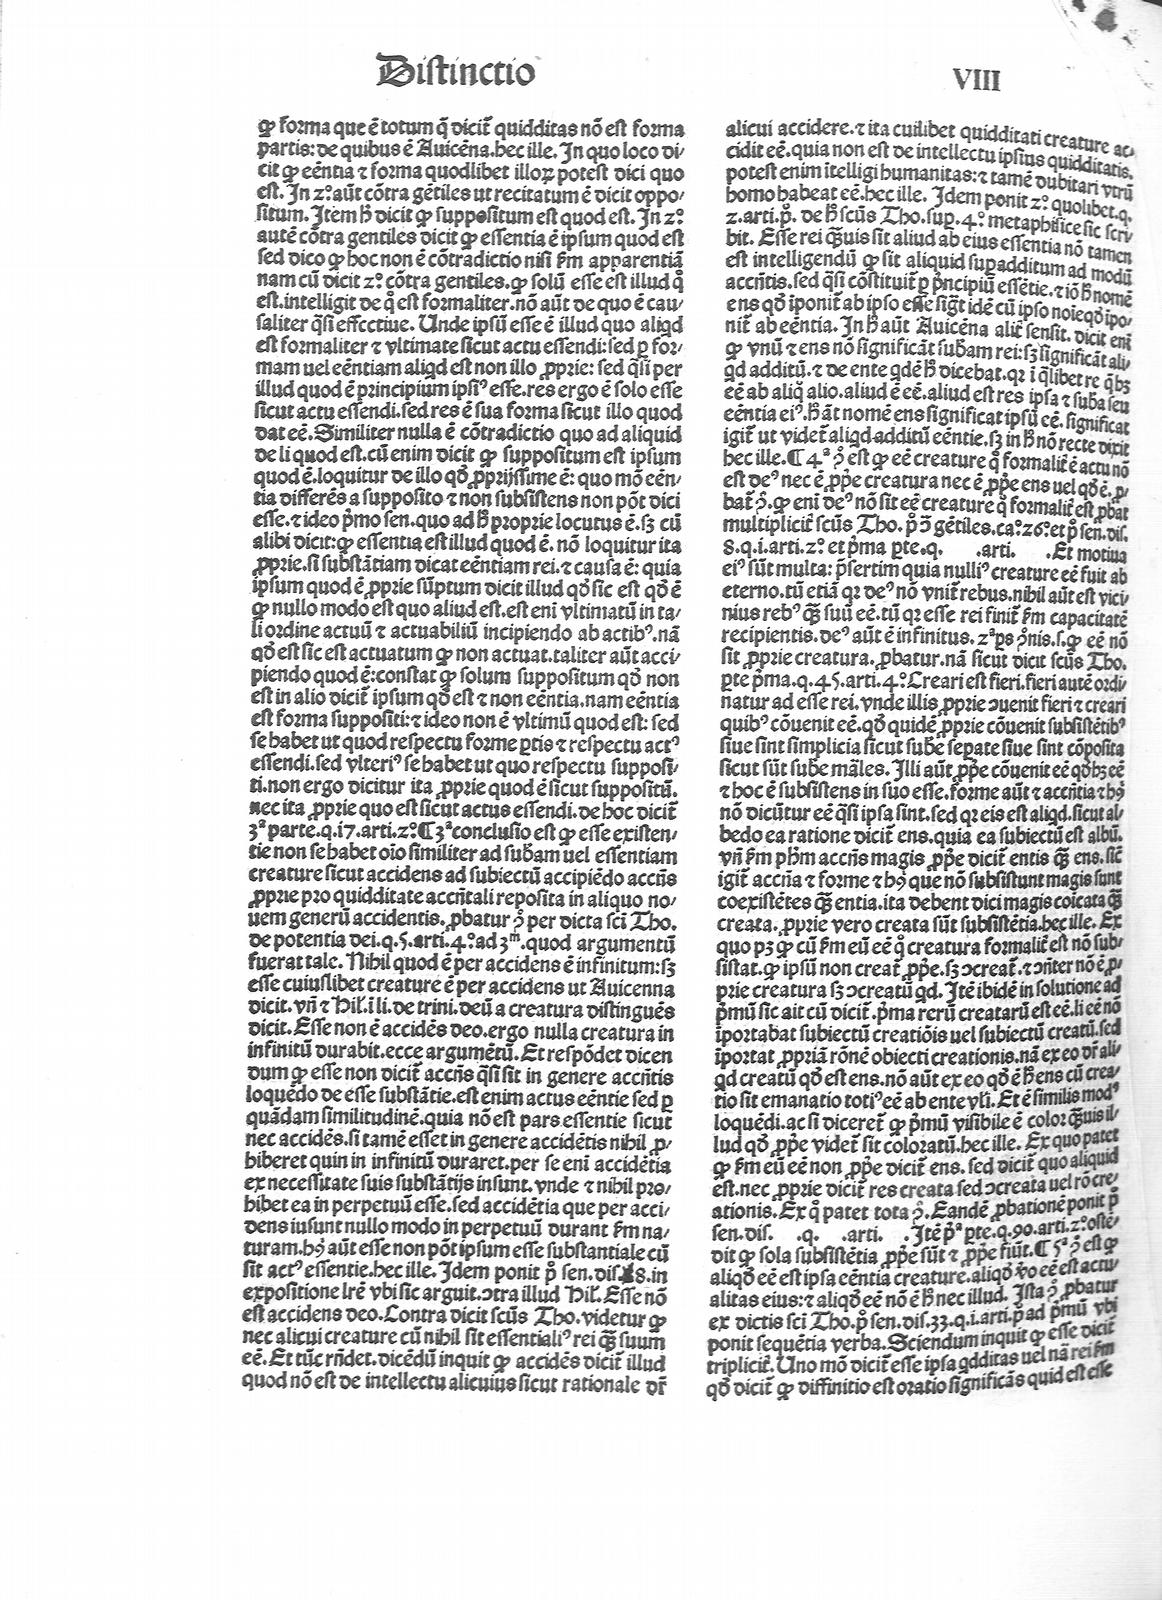 Distinctio
VIII
ꝙ forma que ē totum q̄ dicit̄ quidditas nō est forma
partis: de quibus ē Auicēna. hec ille. In quo loco di/
cit ꝙ eēntia ⁊ forma quodlibet illoꝝ potest dici quo
est. In 2º. aūt cōtra gētiles ut recitatum ē dicit oppo/
situm. Itēm h̄ dicit ꝙ suppositum est quod est. In 2º
autē cōtra gentiles dicit ꝙ essentia ē ipsum quod est
sed dico ꝙ hoc non ē cōtradictio nisi ẜm apparentiā
nam cū dicit 2º. cōtra gentiles. ꝙ solū esse est illud q̊
est. intelligit de q̊ est formaliter. nō aūt de quo ē cau/
saliter q̄si effectiue. Unde ipsū esse ē illud quo aliqd
est formaliter ⁊ vltimate sicut actu essendi: sed ꝑ for/
mam uel eēntiam aliqd est non illo ꝓprie: sed q̄si per
illud quod ē principium ipsiꝰ esse. res ergo ē solo esse
sicut actu essendi. sed res ē sua forma sicut illo quod
dat eē. Similiter nulla ē cōtradictio quo ad aliquid
de li quod est. cū enim dicit ꝙ suppositum est ipsum
quod ē. loquitur de illo qđ ꝓprijssime ē: quo mō eēn/
tia differēs a supposito ⁊ non subsistens non pōt dici
esse. ⁊ ideo p̄mo sen. quo ad h̄ proprie locutus ē. sꝫ cū
alibi dicit: ꝙ essentia est illud quod ē. nō loquitur ita
ꝓprie. si substātiam dicat eēntiam rei. ⁊ causa ē: quia
ipsum quod ē ꝓprie sūptum dicit illud qđ sic est qđ ē
ꝙ nullo modo est quo aliud est. est eni vltimatū in ta/
li ordine actuū ⁊ actuabiliū incipiendo ab actibꝰ. nā
qđ est sic est actuatum ꝙ non actuat. taliter aūt acci/
piendo quod ē: constat ꝙ solum suppositum qđ non
est in alio dicit̄ ipsum qđ est ⁊ non eēntia. nam eēntia
est forma suppositi: ⁊ ideo non ē vltimū quod est: sed
se habet ut quod respectu forme ꝑtis ⁊ respectu actꝰ
essendi. sed vlteriꝰ se habet ut quo respectu supposi/
ti. non ergo dicitur ita ꝓprie quod ē sicut suppositū.
nec ita ꝓprie quo est sicut actus essendi. de hoc dicit̄
3ª parte. q. 17. arti. 2º. ¶ 3ª conclusio est ꝙ esse existen/
tie non se habet oīo similiter ad subām uel essentiam
creature sicut accidens ad subiectū accipiēdo accn̄s
ꝓprie pro quidditate accn̄tali reposita in aliquo no/
uem generū accidentis. ꝓbatur ꝯ per dicta sc̄i Tho.
de potentia dei. q. 5. arti. 4º. ad 3m. quod argumentū
fuerat tale. Nihil quod ē per accidens ē infinitum: sꝫ
esse cuiuslibet creature ē per accidens ut Auicenna
dicit. vn̄ ⁊ Hil. i li. de trini. deū a creatura distinguēs
dicit. Esse non ē accidēs deo. ergo nulla creatura in
infinitū durabit. ecce argumētū. Et respōdet dicen
dum ꝙ esse non dicit̄ accn̄s q̄si sit in genere accn̄tis
loquēdo de esse substātie. est enim actus eēntie sed ꝑ
quādam similitudinē. quia nō est pars essentie sicut
nec accidēs. si tamē esset in genere accidētis nihil ꝓ/
hiberet quin in infinitū duraret. per se eni accidētia
ex necessitate suis substātijs insunt. vnde ⁊ nihil pro/
hibet ea in perpetuū esse. sed accidētia que per acci/
dens iusunt nullo modo in perpetuū durant ẜm na/
turam. hꝰ aūt esse non pōt ipsum esse substantiale cū
sit actꝰ essentie. hec ille. Idem ponit p̊ sen. dis. 8. in
expositione lr̄e vbi sic arguit. ↄtra illud Hil. Esse nō
est accidens deo. Contra dicit scūs Tho. videtur ꝙ
nec alicui creature cū nihil sit essentialiꝰ rei q̄ꝫ suum
eē. Et tūc rn̄det. dicēdū inquit ꝙ accidēs dicit̄ illud
quod nō est de intellectu alicuius sicut rationale dr̄
alicui accidere. ⁊ ita cuilibet quidditati creature ac/
cidit eē. quia non est de intellectu ipsius quidditatis.
potest enim itelligi humanitas: ⁊ tamē dubitari vtrū
homo habeat eē. hec ille. Idem ponit 2º. quolibet. q.
2. arti. p̊. de h̄ scūs Tho. sup. 4º. metaphisice sic scri/
bit. Esse rei q̄ꝫuis sit aliud ab eius essentia nō tamen
est intelligendū ꝙ sit aliquid supadditum ad modū
accn̄tis. sed q̄si cōstituit̄ ꝑ p̄ncipiū essētie. ⁊ iō h̄ nomē
ens qđ iponit̄ ab ipso esse sigt̄ idē cū ipso noie qđ ipo/
nit̄ ab eēntia. In h̄ aūt Auicēna alit̄ sensit. dicit eni
ꝙ vnū ⁊ ens nō significāt subām rei: sꝫ significāt ali/
qd additū. ⁊ de ente qdē h̄ dicebat. qꝛ i q̄libet re q̄ hꝫ
eē ab aliq̊ alio. aliud ē eē. aliud est res ipsa ⁊ subā seu
eēntia eiꝰ. h̄ āt nomē ens significat ipsū eē. significat
igit̄ ut videt̄ aliqd additū eēntie. sꝫ in h̄ nō recte dixit
hec ille. ¶ 4ª ꝯ est ꝙ eē creature q̊ formalit̄ ē actu nō
est deꝰ nec ē ꝓpe creatura nec ē ꝓpe ens uel qđ ē. ꝓ/
bat̄ ꝯ. ꝙ eni deꝰ nō sit eē creature q̊ formalit̄ est ꝓbat
multiplicit̄ scūs Tho. p̊ ↄ̄ gētiles. ca. 26. et p̊ sen. dis.
8. q. i. arti. 2º. et p̄ma ꝑte. q. .arti. .Et motiua
eiꝰ sūt multa: p̄sertim quia nulliꝰ creature eē fuit ab
eterno. tū etiā qꝛ deꝰ nō vnit̄ rebus. nihil aūt est vici/
nius rebꝰ q̄ꝫ suū eē. tū qꝛ esse rei finit̄ ẜm capacitatē
recipientis. deꝰ aūt ē infinitus. 2ª ps ꝯnis. s. ꝙ eē nō
sit ꝓprie creatura. ꝓbatur. nā sicut dicit scūs Tho.
ꝑte p̄ma. q. 45. arti. 4º. Creari est fieri. fieri autē ordi/
natur ad esse rei. vnde illis ꝓprie ↄuenit fieri ⁊ creari
quibꝰ cōuenit eē. qđ quidē ꝓprie cōuenit subsistētibꝰ
siue sint simplicia sicut sube sepate siue sint cōposita
sicut sūt sube māles. Illi aūt ꝓpe cōuenit eē qđ hꝫ eē
⁊ hoc ē subsistens in suo esse. forme aūt ⁊ accn̄tia ⁊ hꝰ
nō dicūtur eē q̄si ipsa sint. sed qꝛ eis est aliqd. sicut al/
bedo ea ratione dicit̄ ens. quia ea subiectū est albū.
vn̄ ẜm ph̄m accn̄s magis ꝓpe dicit̄ entis q̄ꝫ ens. sic̄
igit̄ accn̄a ⁊ forme ⁊ hꝰ que nō subsistunt magis sunt
coexistētes q̄ꝫ entia. ita debent dici magis cōicata q̄ꝫ
creata. ꝓprie vero creata sūt subsistētia. hec ille. Ex
quo pꝫ ꝙ cū ẜm eū eē q̊ creatura formalit̄ est nō sub/
sistat. ꝙ ipsū non creat̄ ꝓpe. sꝫ ↄcreat̄. ⁊ ↄn̄ter nō ē ꝓ/
prie creatura sꝫ ↄcreatū qd. Itē ibidē in solutione ad
p̄mū sic ait cū dicit. p̄ma rerū creatarū est eē. li eē nō
iportabat subiectū creatiōis uel subiectū creatū. sed
iportat ꝓpriā rōnē obiecti creationis. nā ex eo dr̄ ali/
qd creatū qđ est ens. nō aūt ex eo qđ ē h̄ ens cū crea/
tio sit emanatio totiꝰ eē ab ente vli. Et ē similis modꝰ
loquēdi. ac si diceret̄ ꝙ p̄mū visibile ē color q̄ꝫuis il/
lud qđ ꝓpe videt̄ sit coloratū. hec ille. Ex quo patet
ꝙ ẜm eū eē non ꝓpe dicit̄ ens. sed dicit̄ quo aliquid
est. nec ꝓprie dicit̄ res creata sed ↄcreata uel rō cre/
ationis. Ex q̊ patet tota ꝯ. Eandē ꝓbationē ponit p̊
sen. dis. .q. .arti. .Itē pª ꝑte. q. 90. arti. 2º. ostē/
dit ꝙ sola subsistētia ꝓpe sūt ⁊ ꝓpe fiūt. ¶ 5ª ꝯ est ꝙ
aliqđ eē est ipsa eēntia creature. aliqđ v̊o eē est actu/
alitas eius: ⁊ aliqđ eē nō ē h̄ nec illud. Ista ꝯ ꝓbatur
ex dictis sc̄i Tho. p̊ sen. dis. 33. q. i. arti. p̊ ad p̄mū vbi
ponit sequētia verba. Sciendum inquit ꝙ esse dicit̄
triplicit̄. Uno mō dicit̄ esse ipsa qdditas uel nā rei ẜm
qđ dicit̄ ꝙ diffinitio est oratio significās quid est esse